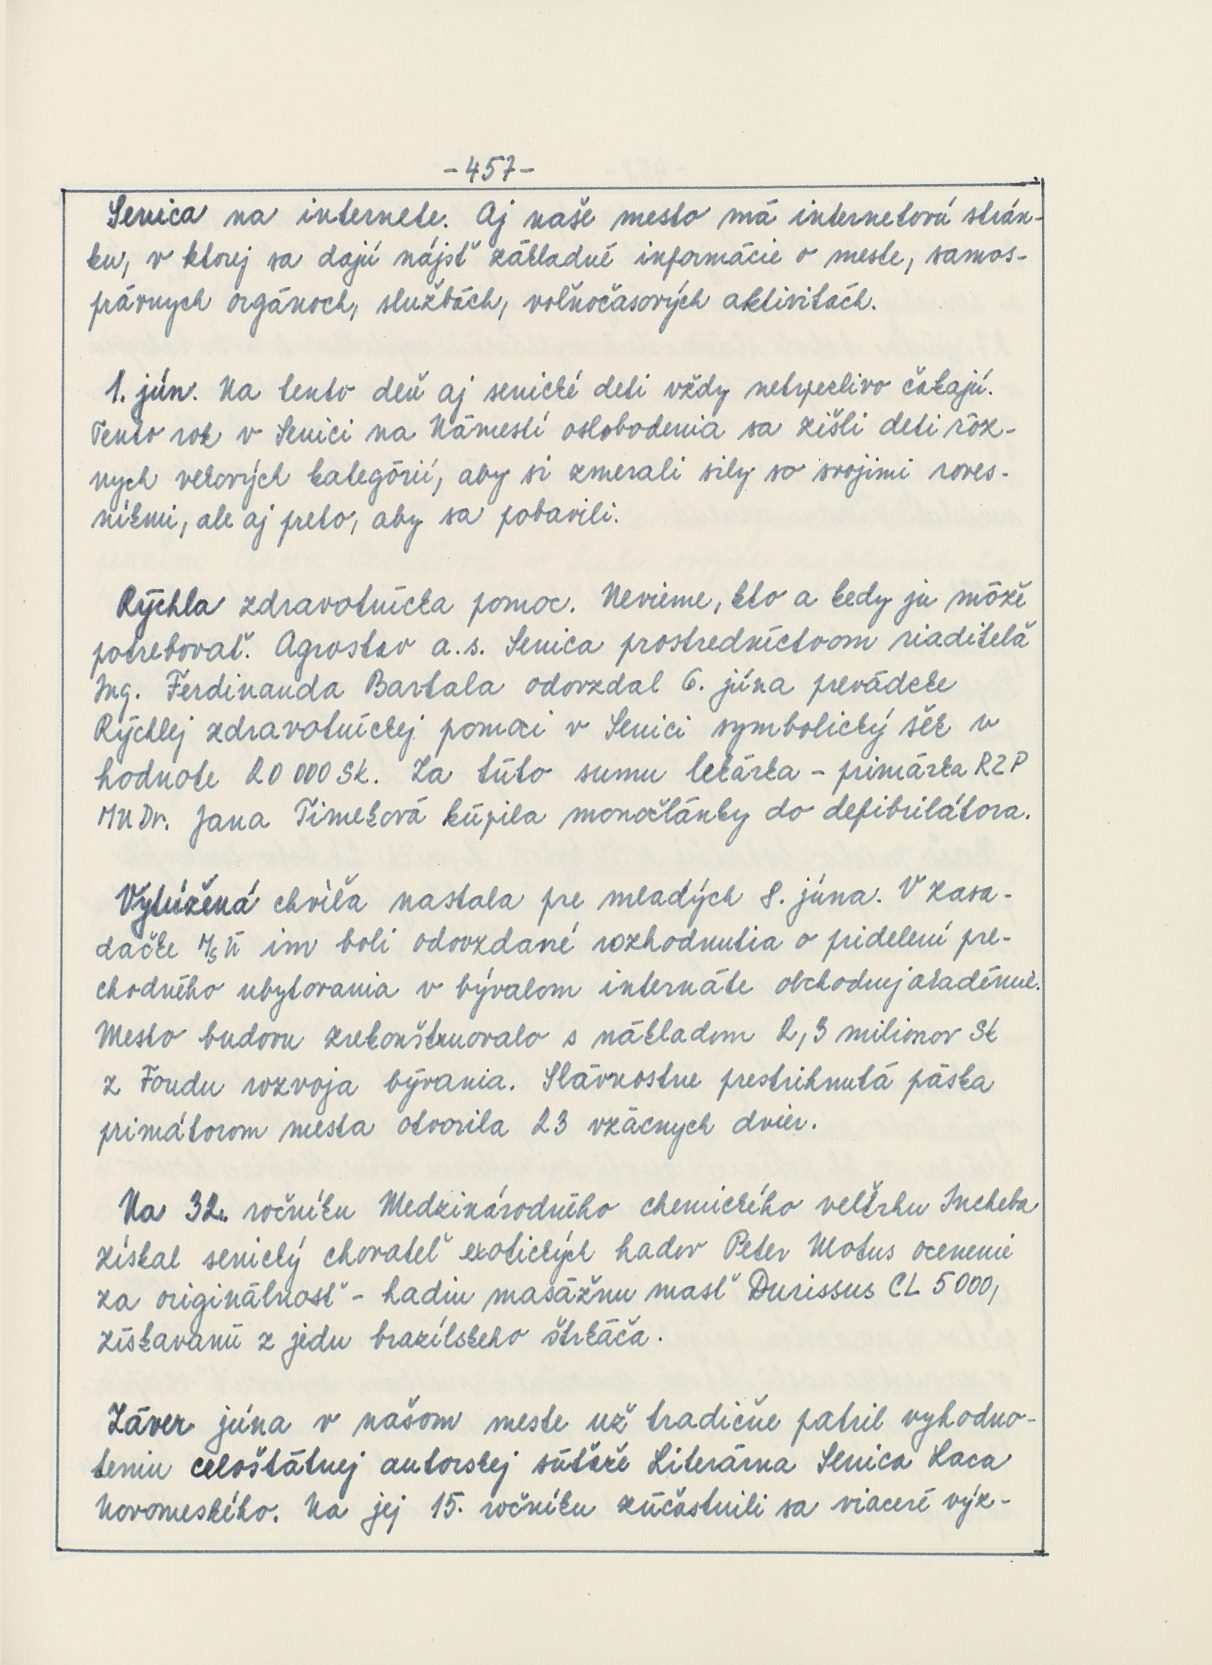 -457-
Senica na internete. Aj naše mesto má internetovú strán-
ku, v ktorej sa dajú nájsť základné informácie o meste, samos-
právnych orgánoch, službách, voľnočasových aktivitách.
1. jún. Na tento deň aj senické deti vždy netrpezlivo čakajú.
Tento rok v Senici na Námestí oslobodenia sa zišli deti rôz-
nych vekových kategórií, aby si zmerali sily so svojimi roves-
níkmi, ale aj preto, aby sa pobavili.
Rýchla zdravotnícka pomoc. Nevieme, kto a kedy ju môže
potrebovať. Agrostav a.s. Senica prostredníctvom riaditeľa
Ing. Ferdinanda Bartala odovzdal 6. júna prevádzke
Rýchlej zdravotníckej pomoci v Senici symbolický šek v
hodnote 20 000 Sk. Za túto sumu lekárka - primárka RZP
MUDr. Jana Timeková kúpila monočlánky do defibrilátora.
Vytúžená chvíľa nastala pre mladých 8. júna. V zasa-
dačke MsÚ im boli odovzdané rozhodnutia o pridelení pre-
chodného ubytovania v bývalom internáte obchodnej akadémie.
Mesto budovu zrekonštruovalo s nákladom 2,3 milionov Sk
z Fondu rozvoja bývania. Slávnostne prestrihnutá páska
primátorom mesta otvorila 23 vzácnych dvier.
Na 32. ročníku Medzinárodného chemického veľtrhu Incheba
získal senický chovateľ exotických hadov Peter Motus ocenenie
za originálnosť - hadiu masážnu masť Durissus CL 5000,
získavanú z jedu brazílskeho štrkáča.
Záver júna v našom meste už tradične patril vyhodno-
teniu celoštátnej autorskej súťaže Literárna Senica Laca
Novomeského. Na jej 15. ročníku zúčastnili sa viaceré výz-